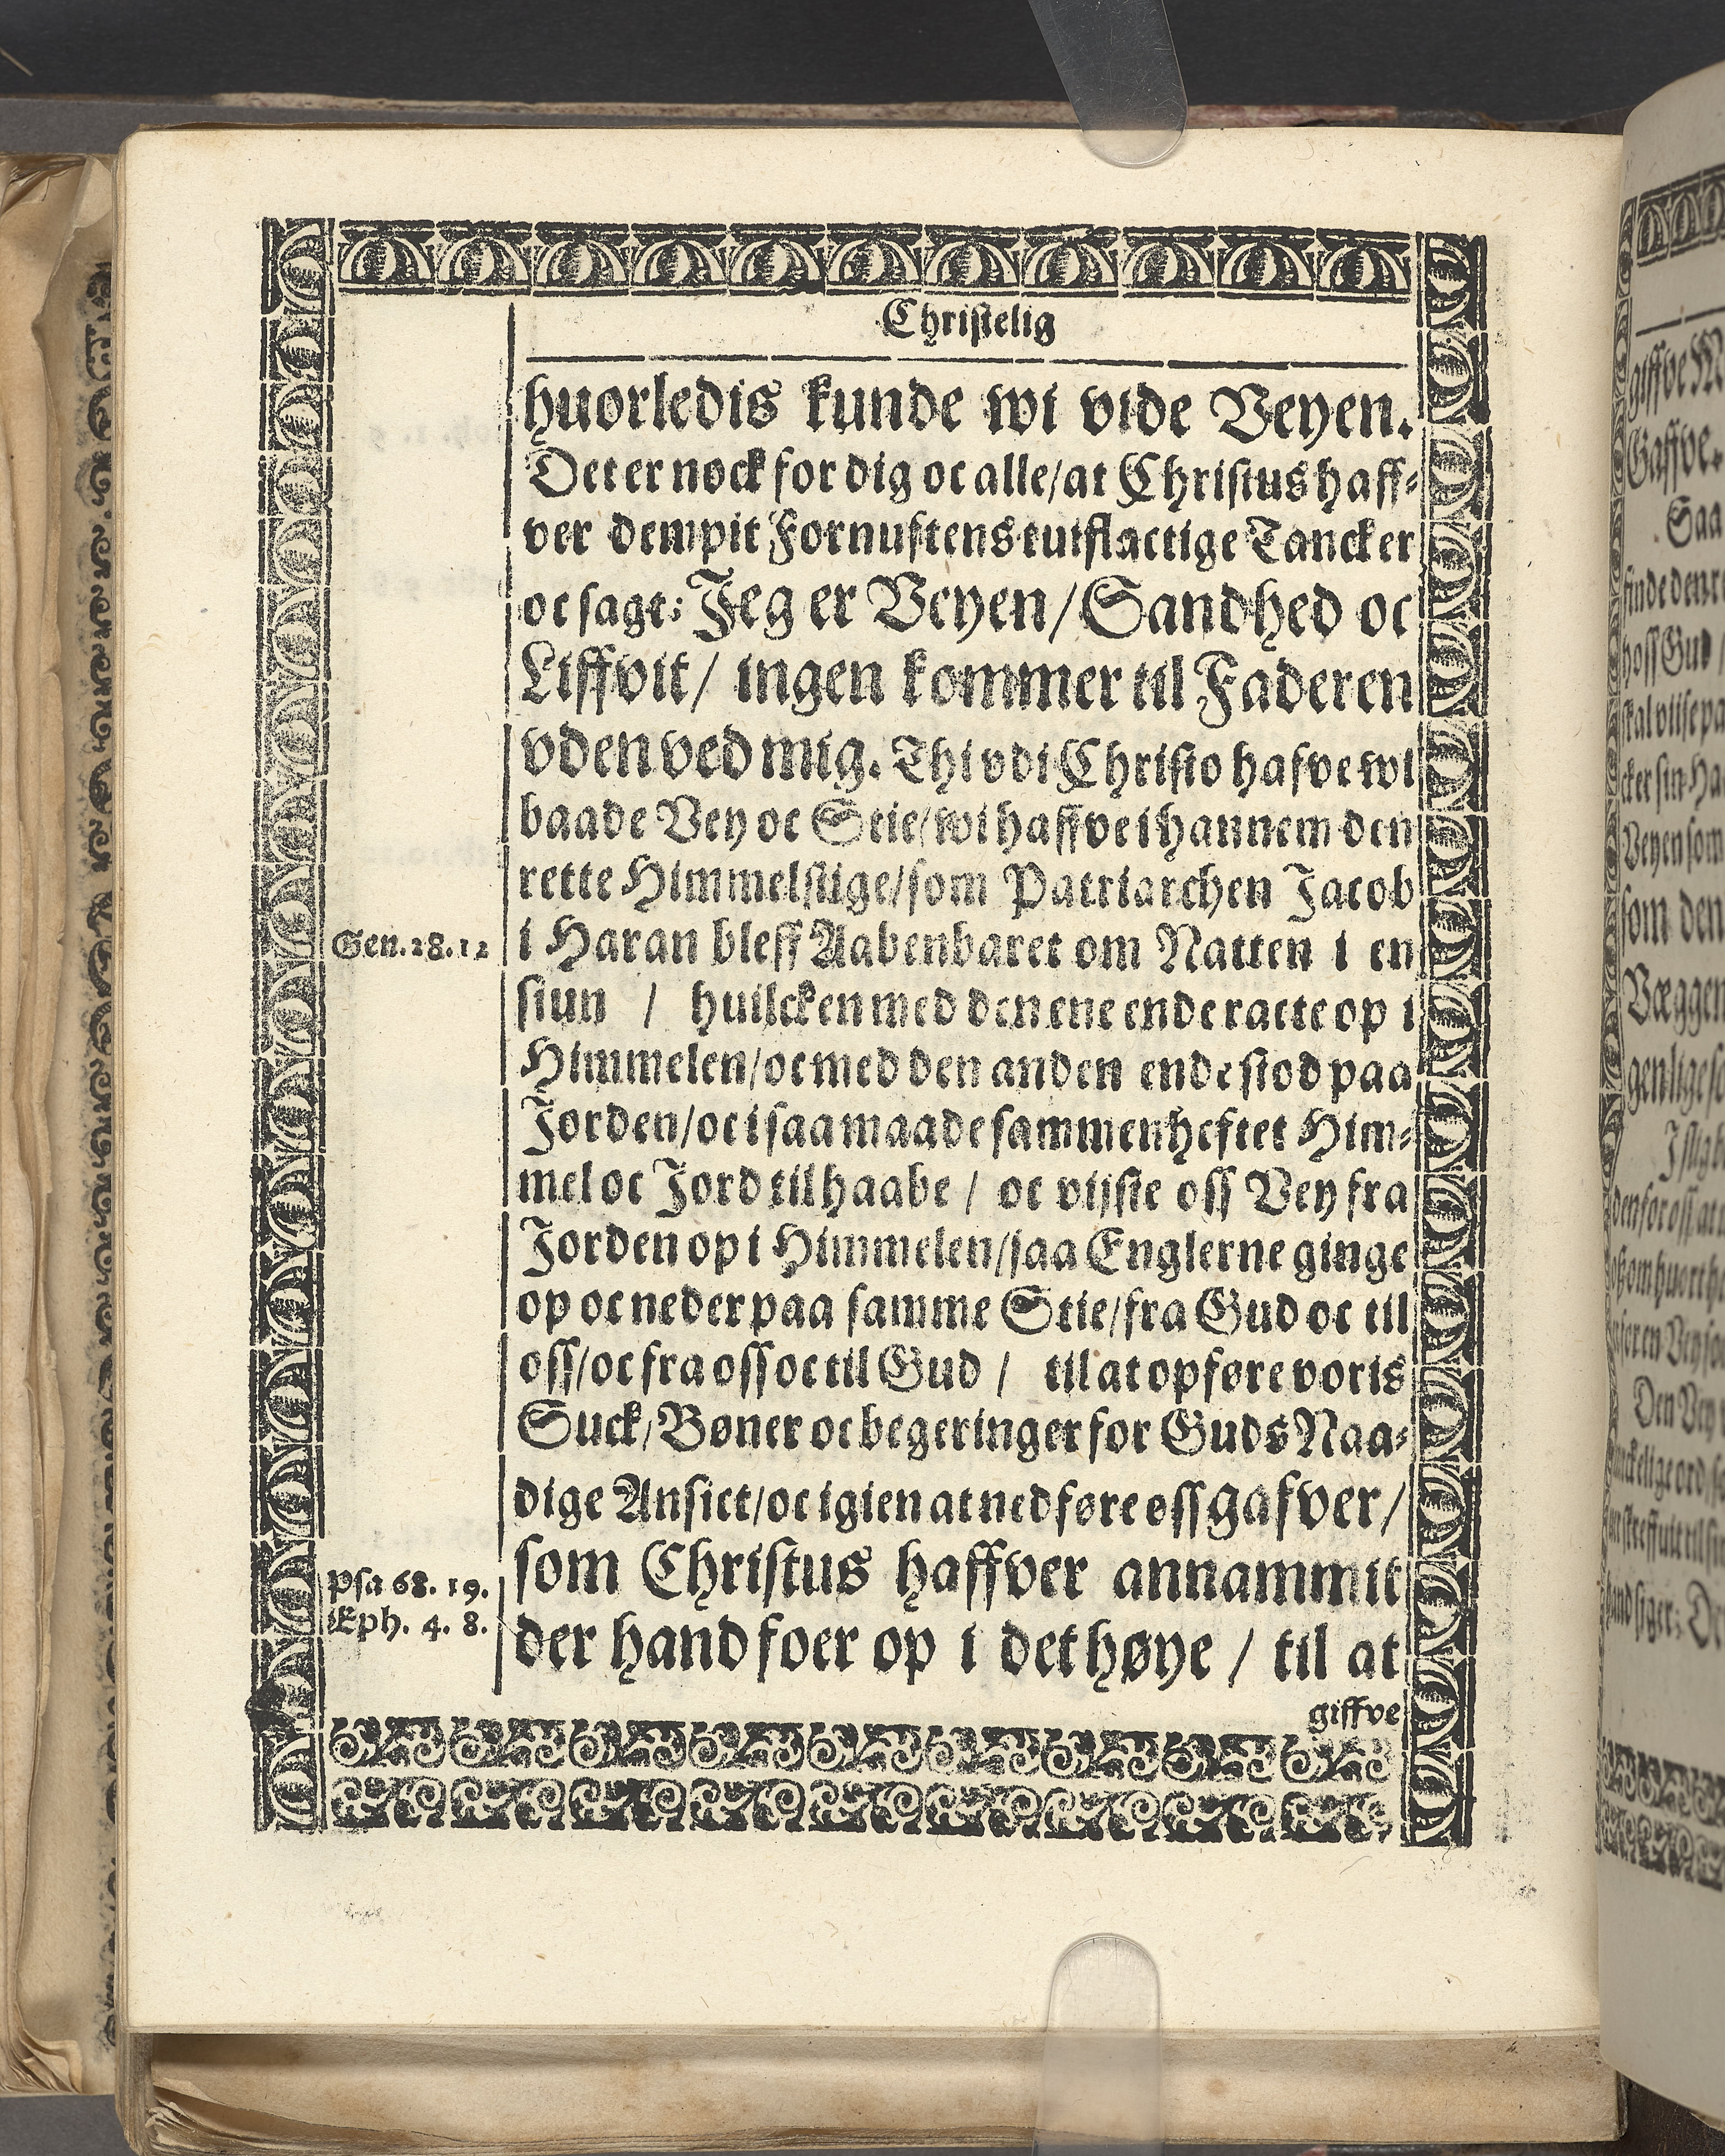 Christelig
huorledis kunde wi vide Veyen.
Det er nock for dig oc alle/at Christus haff-
ver dempit Fornuftens tuiflactige Tancker
oc sagt: Jeg er Veyen/Sandhed oc
Liffvit/ ingen kommer til Faderen
vden ved mig. Thi vdi Christo hafve wi
baade Vey oc Stie/wi haffve i hannem den
rette Himmelstige/som Patriarchen Jacob
Gen. 28. 12
i Haran bleff Aabenbaret om Natten i en
siun / huilcken med den ene ende racte op i
Himmelen/oc med den anden ende stod paa
Jorden/oc i saa maade sammenheftet Him-
mel oc Jord tilhaabe / oc vijste oss Vey fra
Jorden op i Himmelen/saa Englerne ginge
op oc neder paa samme Stie/fra Gud oc til
oss/oc fra oss oc til Gud / til at opføre voris
Suck/Bøner oc begeringer for Guds Naa-
dige Ansict/oc igien at nedføre oss gafver/
Psa 68. 19.
som Christus haffver annammit
Eph. 4. 8.
der hand foer op i det høye / til at
giffve